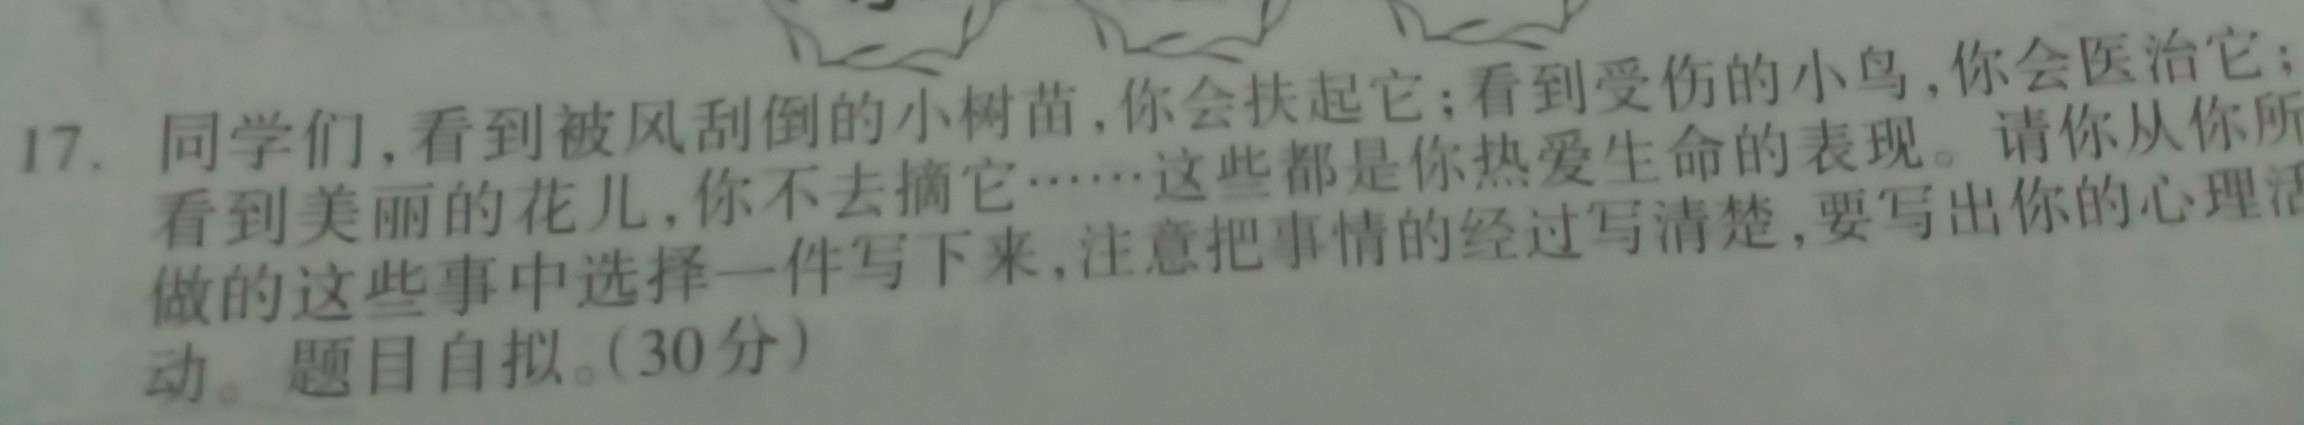 17. 同学们,看到被风刮倒的小树苗,你会扶起它;看到受伤的小鸟,你会医治它;
看到美丽的花儿,你不去摘它……这些都是你热爱生命的表现。请你从你所
做的这些事中选择一件写下来,注意把事情的经过写清楚,要写出你的心理活
动。题目自拟。(30分)